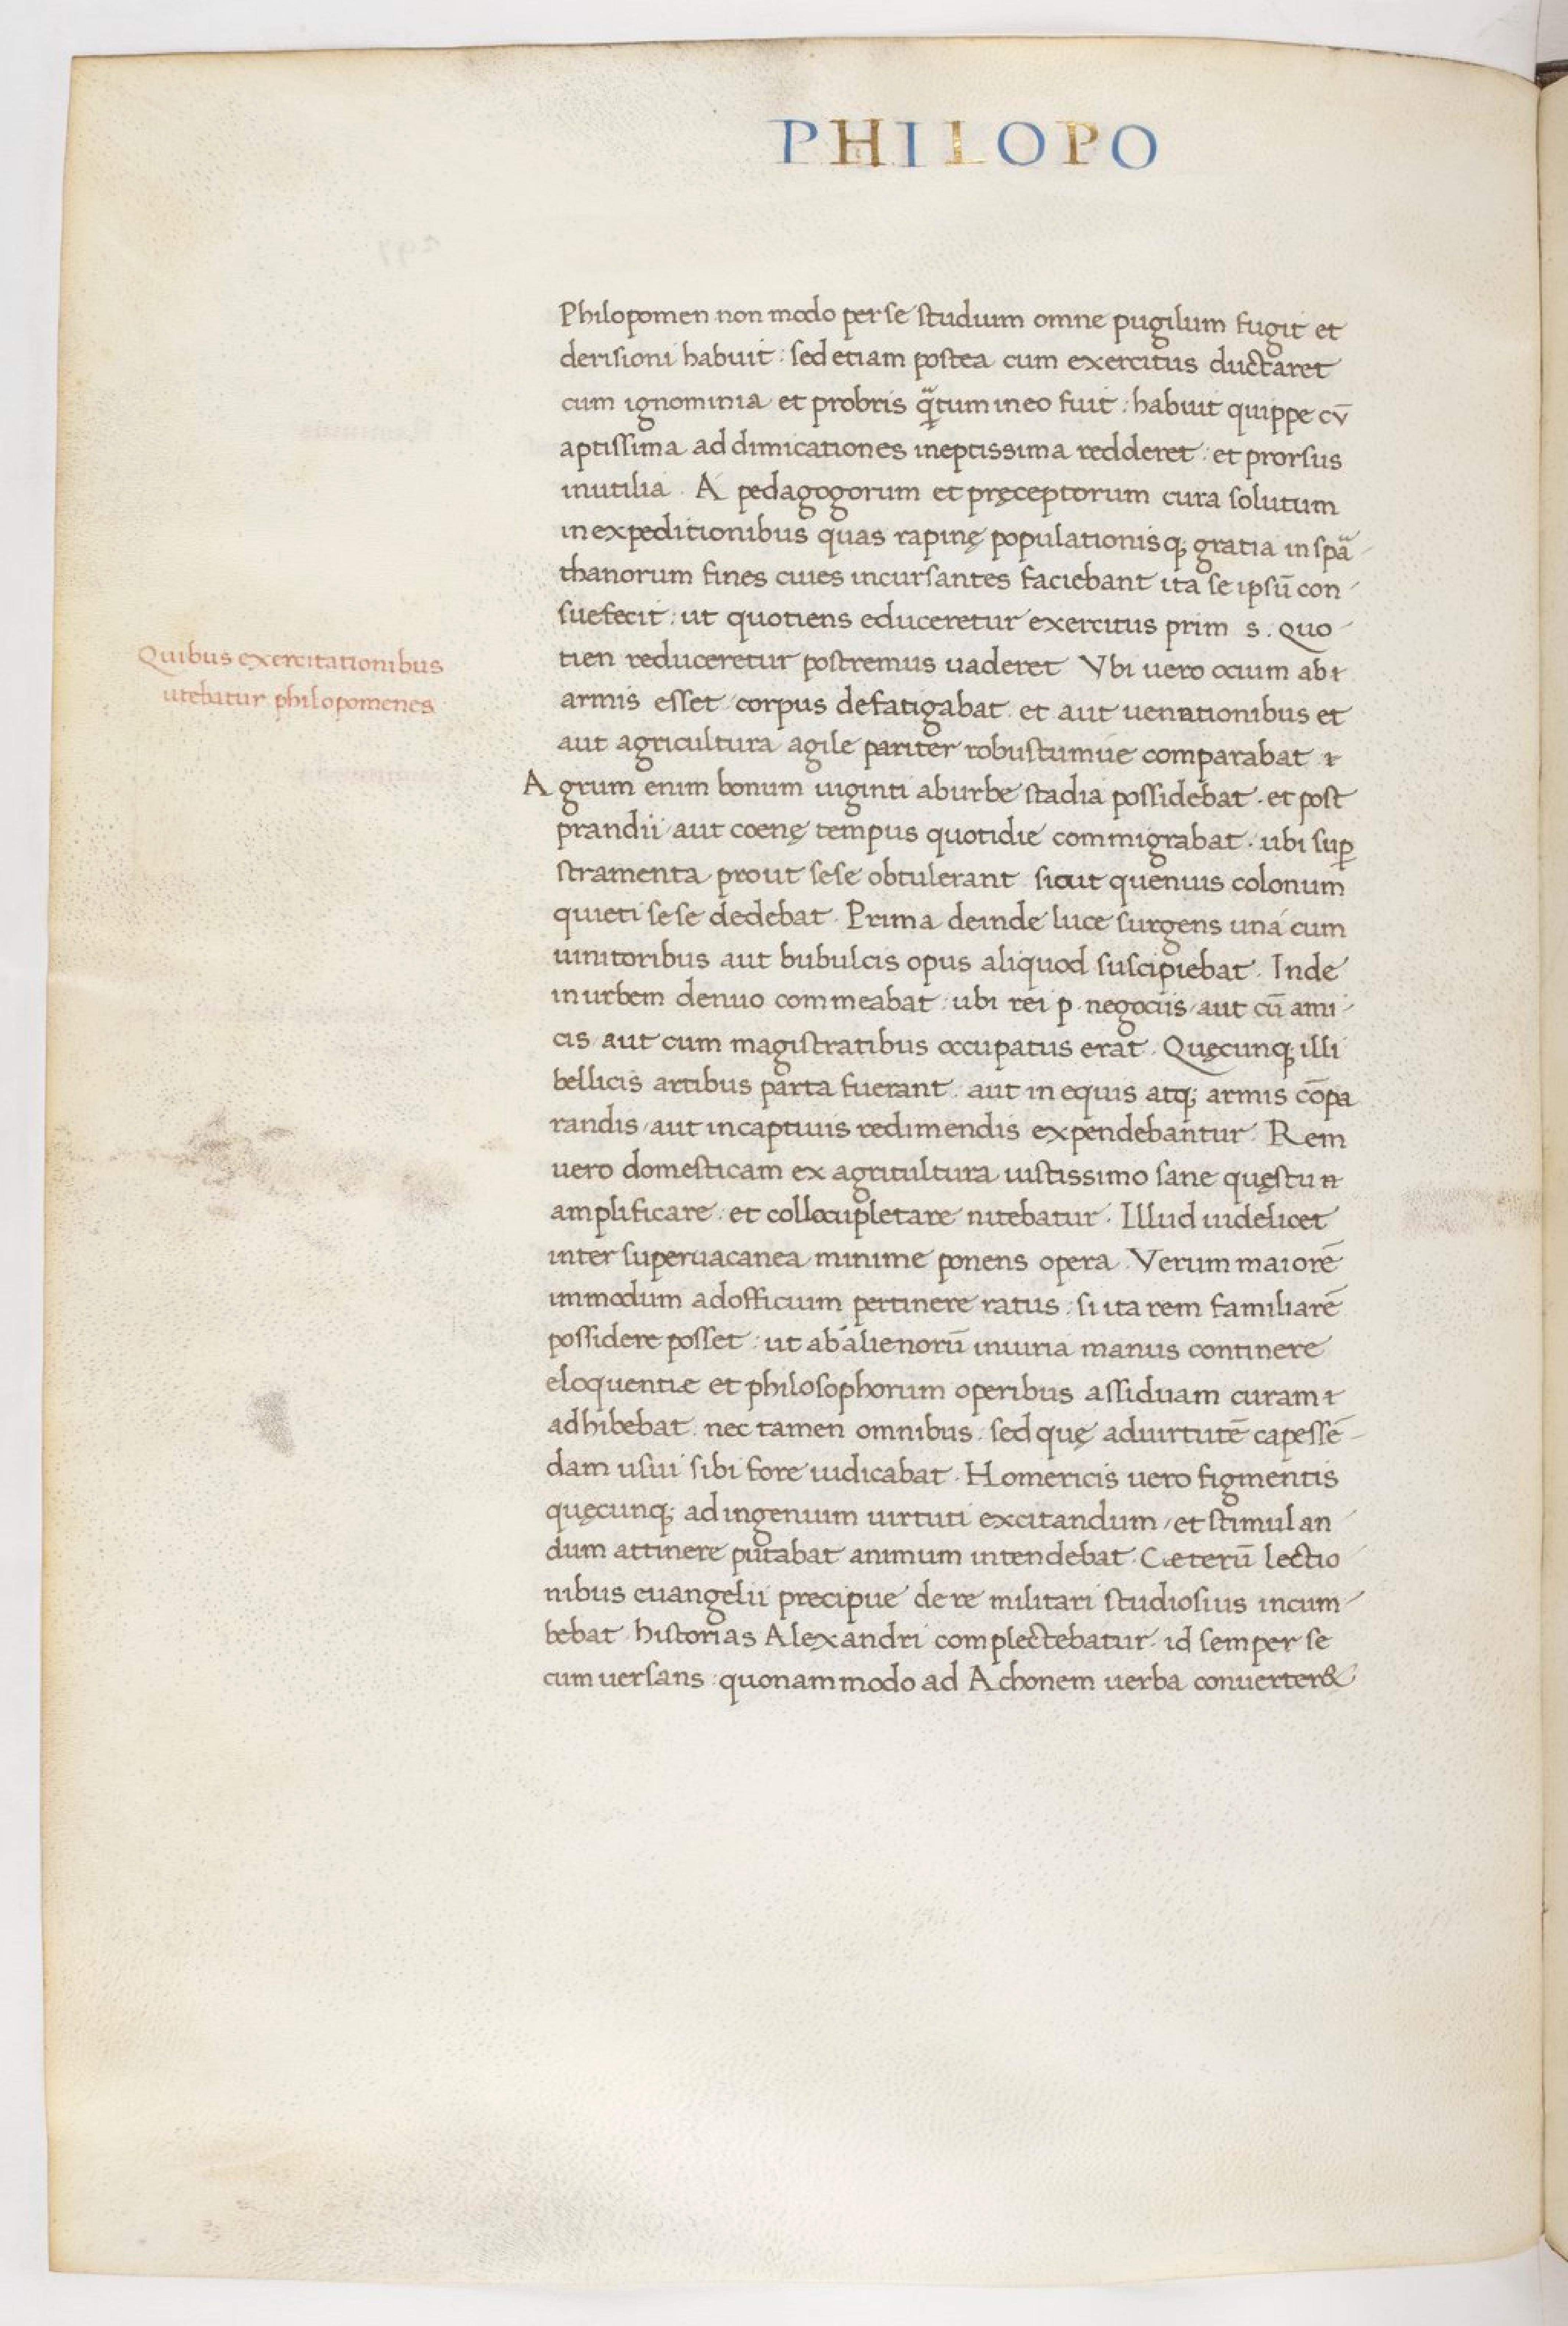 PHILOPO
Philopomen non modo per se studium omne pugilum fugit et
derisioni habuit : sed etiam postea cum exercitus ductaret
cum ignominia et probris q̄tum in eo fuit : habuit quippe cv̄
aptissima ad dimicationes ineptissima redderet : et prorsus
inutilia . A pedagogorum et pręceptorum cura solutum
in expeditionibus quas rapinę populationisq; gratia in spā
thanorum fines ciues incursantes faciebant ita se ipsū con
suefecit : ut quotiens educeretur exercitus prim s . Quo
tien reduceretur postremus uaderet Vbi uero ocium ab
armis esset corpus defatigabat et aut uenationibus et
aut agricultura agile pariter robustumue comparabat
Agrum enim bonum uiginti ab urbe stadia possidebat . et post
prandii aut coenę tempus quotidie commigrabat . ubi sup
stramenta prout sese obtulerant sicut quenuis colonum
quieti sese dedebat . Prima deinde luce surgens una cum
uinitoribus aut bubulcis opus aliquod suscipiebat . Inde
in urbem denuo commeabat : ubi rei p . negociis / aut cū ami
cis / aut cum magistratibus occupatus erat . Quęcunq; illi
bellicis artibus parta fuerant . aut in equis atq; armis cōpa
randis / aut in captiuis redimendis expendebantur . Rem
uero domesticam ex agricultura iustissimo sane quęstu
amplificare : et collocupletare nitebatur . Illud uidelicet
inter superuacanea minime ponens opera . Verum maiorē
immodum ad officium pertinere ratus : si ita rem familiarē
possidere posset : ut ab alienorū iniuria manus continere
eloquentiæ et philosophorum operibus assiduam curam
adhibebat . nec tamen omnibus : sed quę ad uirtutē capessē
dam usui sibi fore iudicabat . Homericis uero figmentis
quęcunq; ad ingenium uirtuti excitandum / et stimulan
dum attinere putabat animum intendebat . Cæterū lectio
nibus euangelii precipue de re militari studiosius incum
bebat historias Alexandri complectebatur . id semper se
cum uersans : quonam modo ad Achonem uerba conuerter&
Quibus exercitationibus
utebatur philopomenes